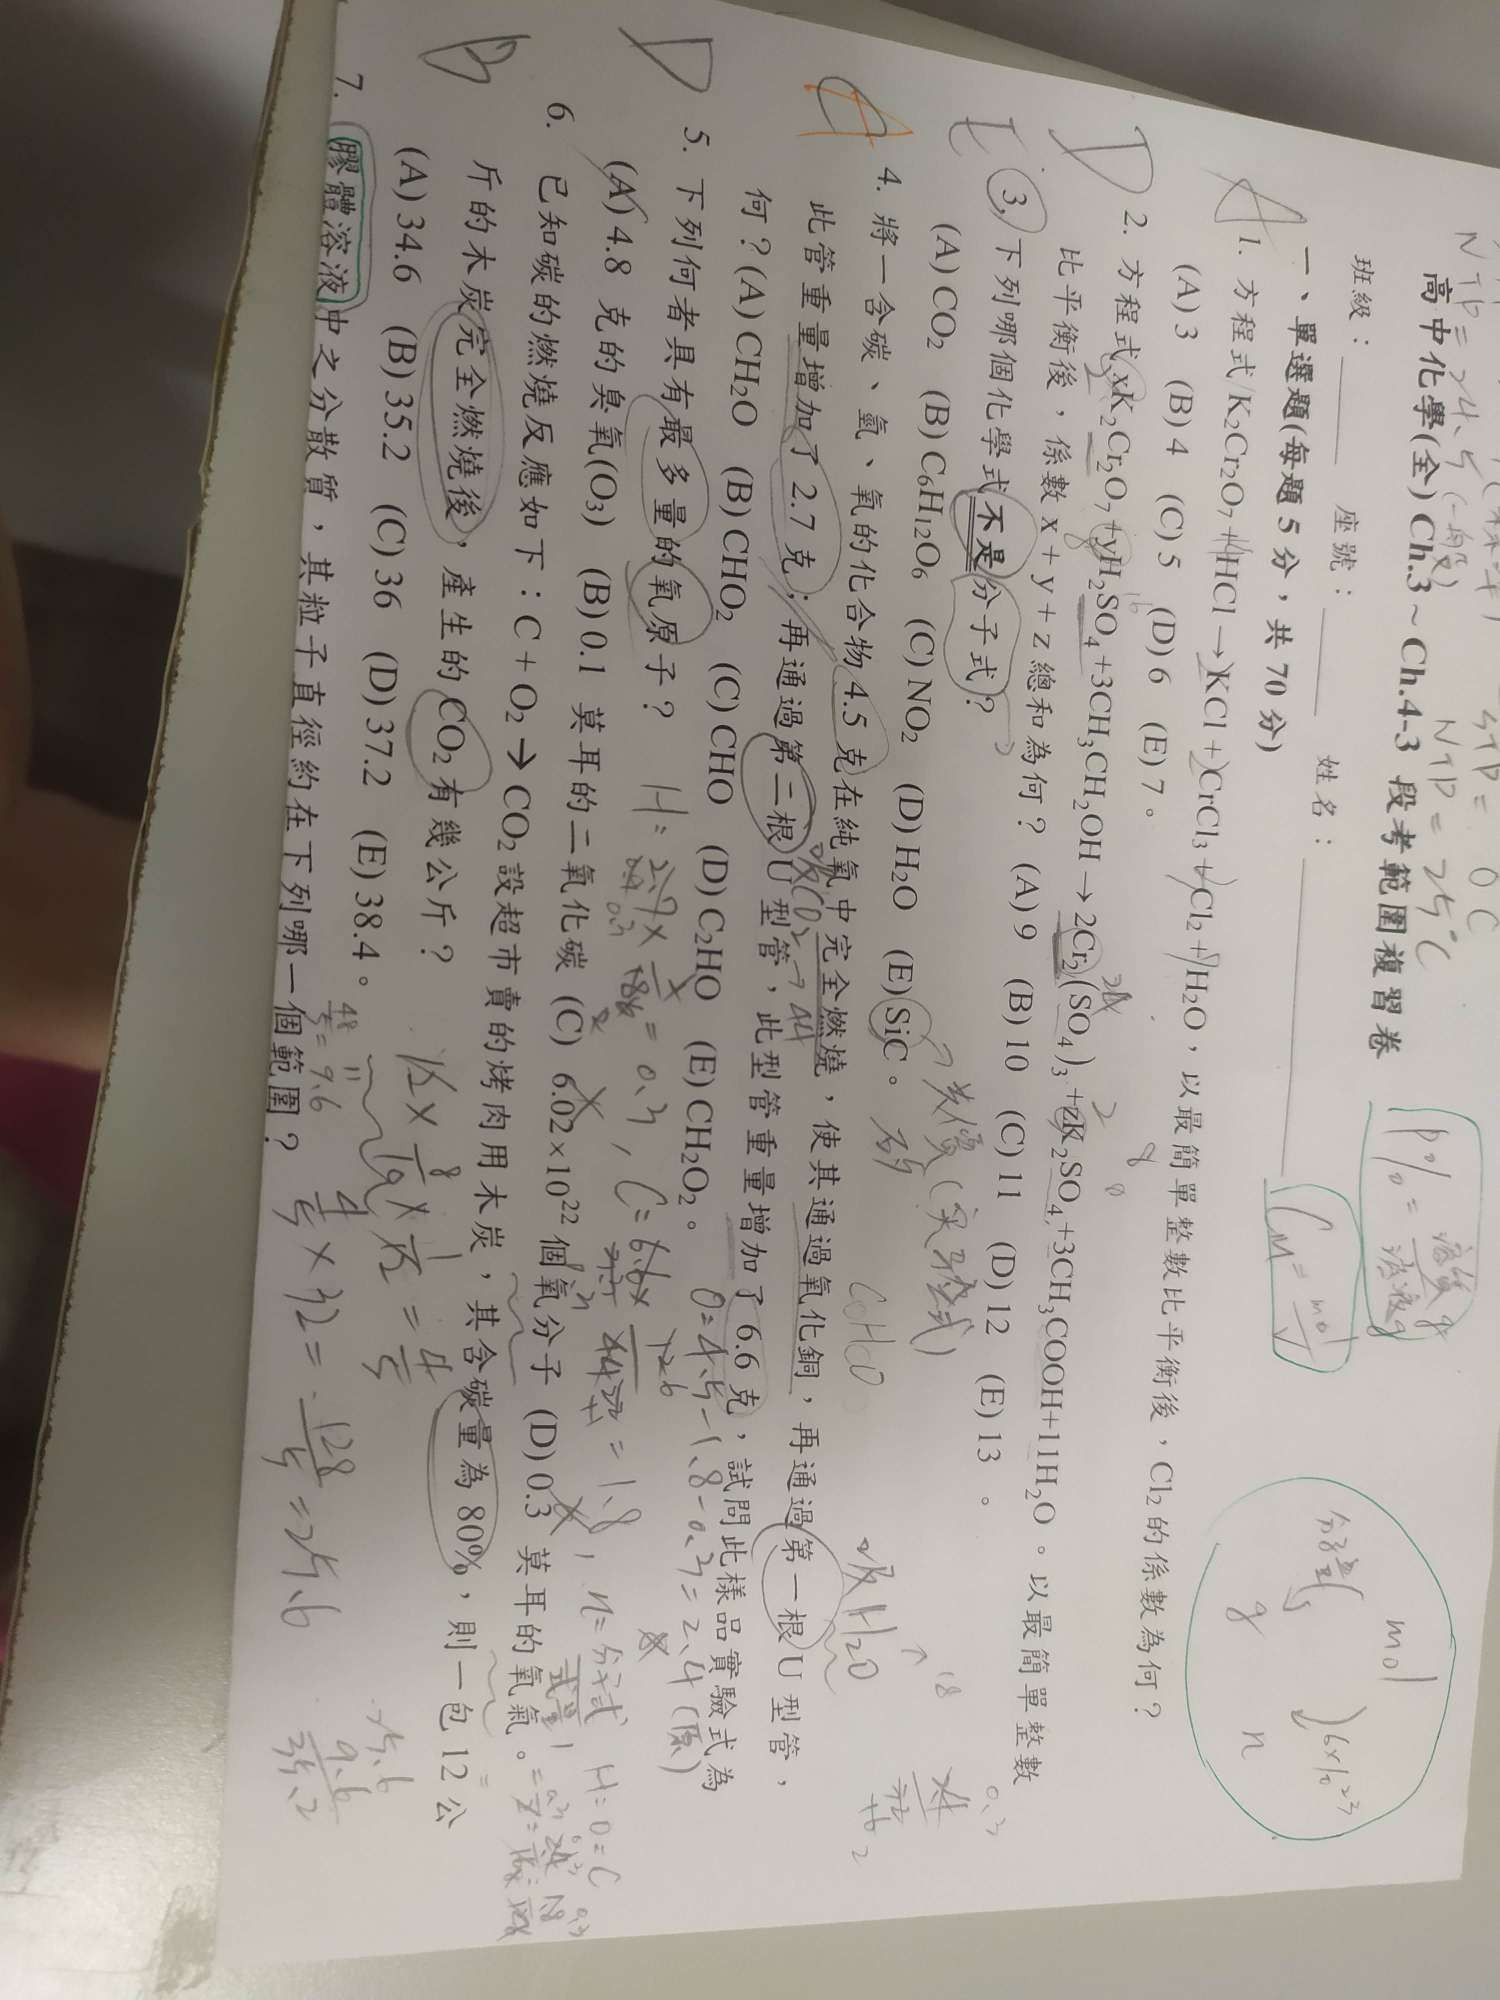 NTP = 24.5 (一般)
0°C
NTP = 25°C
高中化學(全) Ch.3 ~ Ch.4-3 段考範圍複習卷
p% = 溶質g / 溶液g
班級： 座號： 姓名：
CM = mol / V
分子量
mol
g
n
6×10²³
一、單選題(每題 5 分，共 70 分)
A 1. 方程式/K₂Cr₂O₇+HCl→KCl+CrCl₃+Cl₂+H₂O，以最簡單整數比平衡後，Cl₂的係數為何？
(A) 3 (B) 4 (C) 5 (D) 6 (E) 7。
D 2. 方程式xK₂Cr₂O₇+yH₂SO₄+3CH₃CH₂OH→2Cr₂(SO₄)₃+zK₂SO₄+3CH₃COOH+11H₂O。以最簡單整數
比平衡後，係數 x + y + z 總和為何？ (A) 9 (B) 10 (C) 11 (D) 12 (E) 13 。
E 3. 下列哪個化學式不是分子式？
(A) CO₂ (B) C₆H₁₂O₆ (C) NO₂ (D) H₂O (E) SiC。
(實驗式)
A 4. 將一含碳、氫、氧的化合物 4.5 克在純氧中完全燃燒，使其通過氧化銅，再通過第一根U型管，
吸H₂O
18
此管重量增加了 2.7 克；再通過第二根U型管，此型管重量增加了 6.6 克，試問此樣品實驗式為
吸CO₂→44
何？(A) CH₂O (B) CHO₂ (C) CHO (D) C₂HO (E) CH₂O₂。
O=4.5-1.8-0.3=2.4(原)
D 5. 下列何者具有最多量的氧原子？
(A) 4.8 克的臭氧(O₃) (B) 0.1 莫耳的二氧化碳 (C) 6.02×10²² 個氧分子 (D) 0.3 莫耳的氧氣。
B 6. 已知碳的燃燒反應如下：C + O₂ → CO₂ 設超市賣的烤肉用木炭，其含碳量為 80%，則一包 12 公
斤的木炭完全燃燒後，產生的 CO₂ 有幾公斤？
(A) 34.6 (B) 35.2 (C) 36 (D) 37.2 (E) 38.4。
48/5 = 9.6
4/5 × 32 = 128/5 = 25.6
25.6
9.6
35.2
7. 膠體溶液中之分散質，其粒子直徑約在下列哪一個範圍？